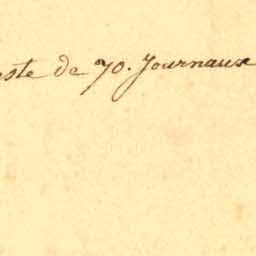 este de 70. Journaux